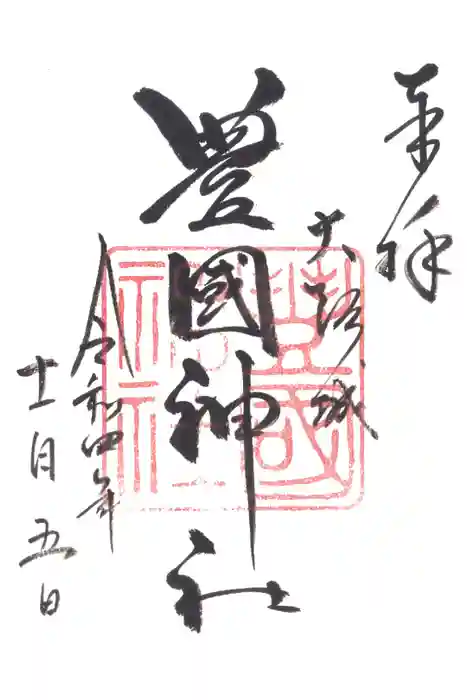 奉拝
大阪城
豊國神社
令和四年
十一月五日
豊國神社